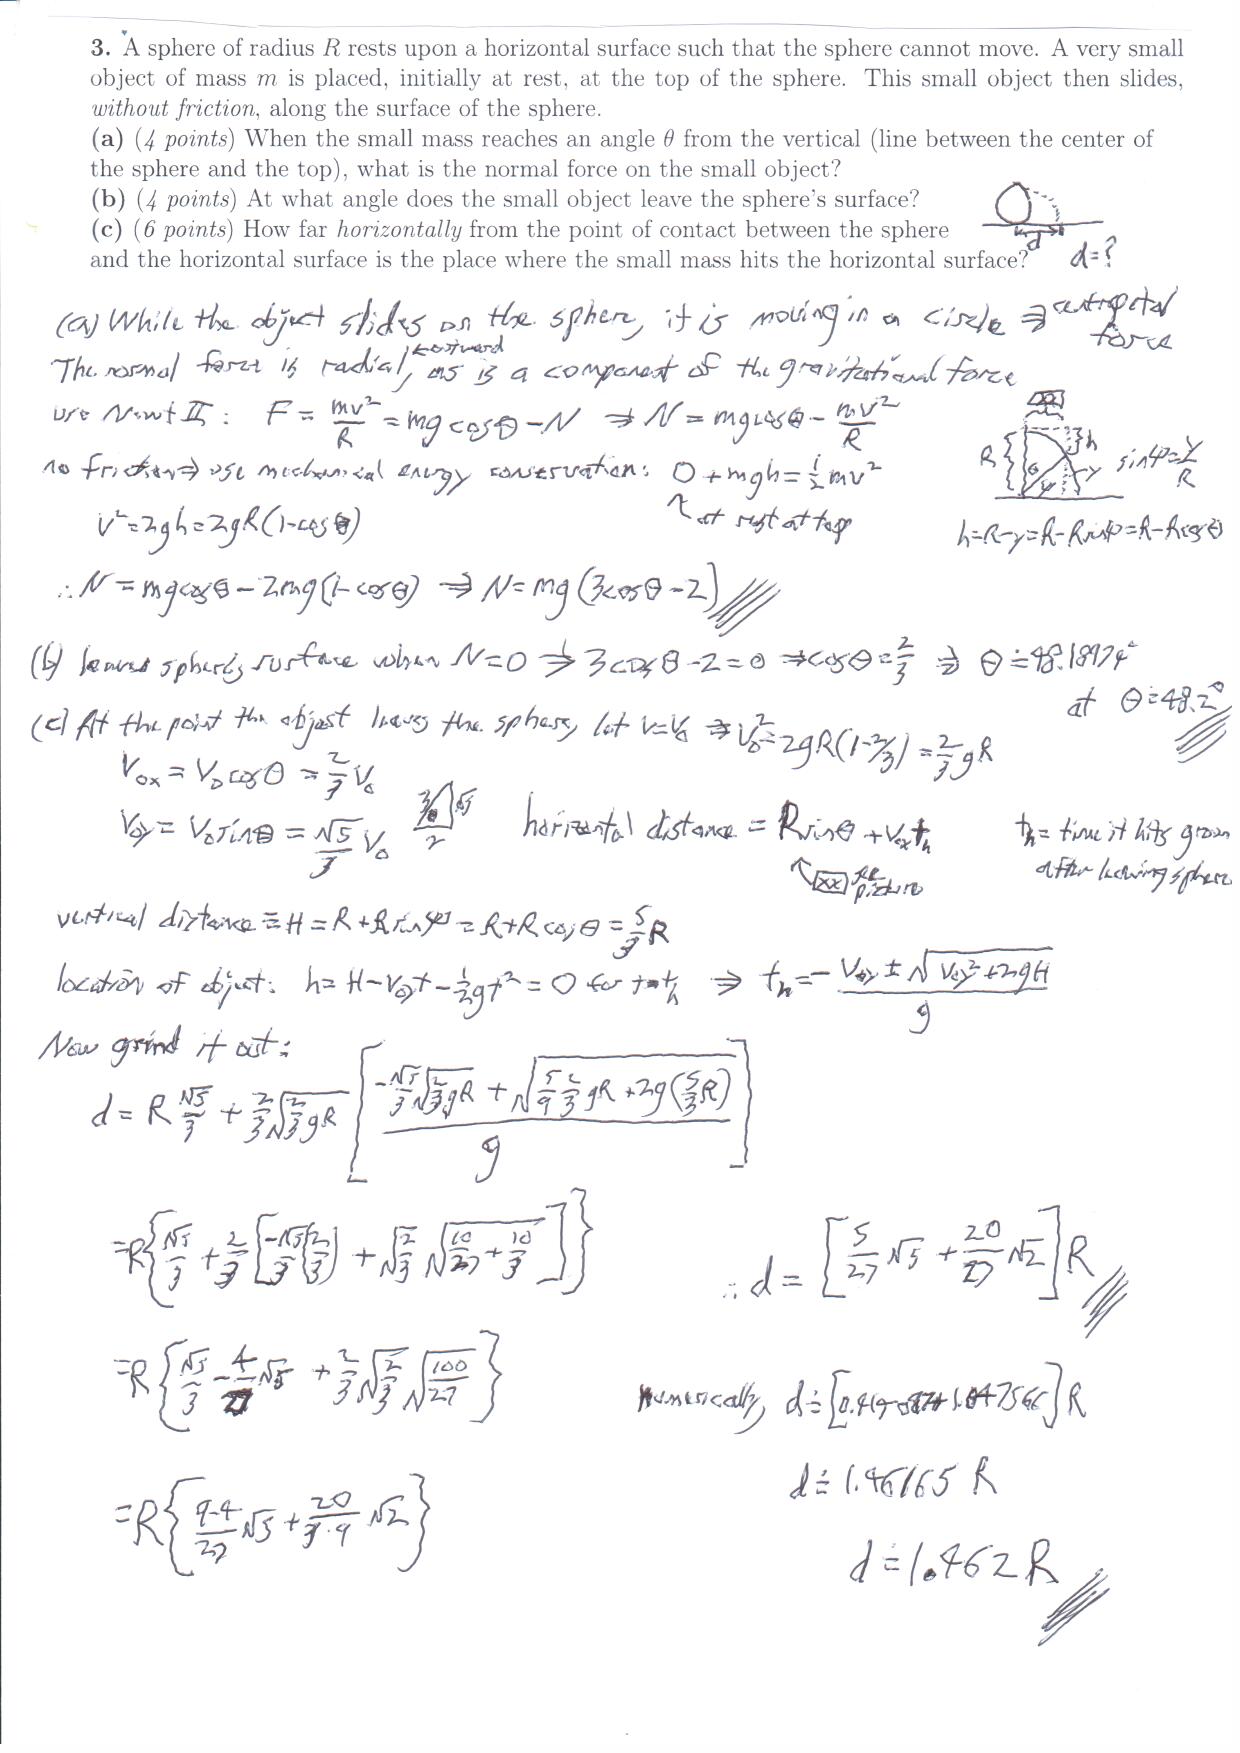 3. A sphere of radius R rests upon a horizontal surface such that the sphere cannot move. A very small
object of mass m is placed, initially at rest, at the top of the sphere. This small object then slides,
without friction, along the surface of the sphere.
(a) (4 points) When the small mass reaches an angle θ from the vertical (line between the center of
the sphere and the top), what is the normal force on the small object?
(b) (4 points) At what angle does the small object leave the sphere's surface?
(c) (6 points) How far horizontally from the point of contact between the sphere
and the horizontal surface is the place where the small mass hits the horizontal surface?
d
d=?
(a) While the object slides on the sphere, it is moving in a circle ⇒ centripetal force
The normal force is radial, outward as is a component of the gravitational force
use Newt II: F = mv²/R = mg cosθ - N ⇒ N = mg cosθ - mv²/R
R θ φ h y sinφ = y/R
no friction ⇒ use mechanical energy conservation: 0 + mgh = ½mv²
↑ at rest at top
v² = 2gh = 2gR(1-cosθ)
h = R-y = R-R sinφ = R-R cosθ
∴ N = mg cosθ - 2mg(1-cosθ) ⇒ N = mg(3cosθ-2)
(b) leaves sphere's surface when N=0 ⇒ 3cosθ-2=0 ⇒ cosθ = 2/3 ⇒ θ ≐ 48.1897°
at θ ≐ 48.2°
(c) At the point the object leaves the sphere, let v=v₀ ⇒ v₀² = 2gR(1-2/3) = 2/3 gR
V₀ₓ = V₀ cosθ = 2/3 V₀
V₀y = V₀ sinθ = √5/3 V₀
3 θ √5 2
horizontal distance = R sinθ + V₀ₓ tₕ
↑ xx see picture
tₕ = time it hits ground
after leaving sphere
vertical distance ≡ H = R + R sinφ = R + R cosθ = 5/3 R
location of object: h = H - V₀y t - ½gt² = 0 for t = tₕ ⇒ tₕ = (-V₀y ± √(V₀y² + 2gH))/g
Now grind it out:
d = R √5/3 + 2/3 √(2/3 gR) [(-√5/3 √(2/3 gR) + √(5/9 2/3 gR + 2g(5/3 R)))/g]
= R{√5/3 + 2/3 [-√5/3 (2/3) + √(2/3) √(10/27 + 10/3)]}
∴ d = [5/27 √5 + 20/27 √2] R
= R{√5/3 - 4/27 √5 + 2/3 √(2/3) √(100/27)}
numerically, d ≐ [0.414087+1.047566] R
d ≐ 1.46165 R
= R{(9-4)/27 √5 + 20/(3·9) √2}
d ≐ 1.462 R